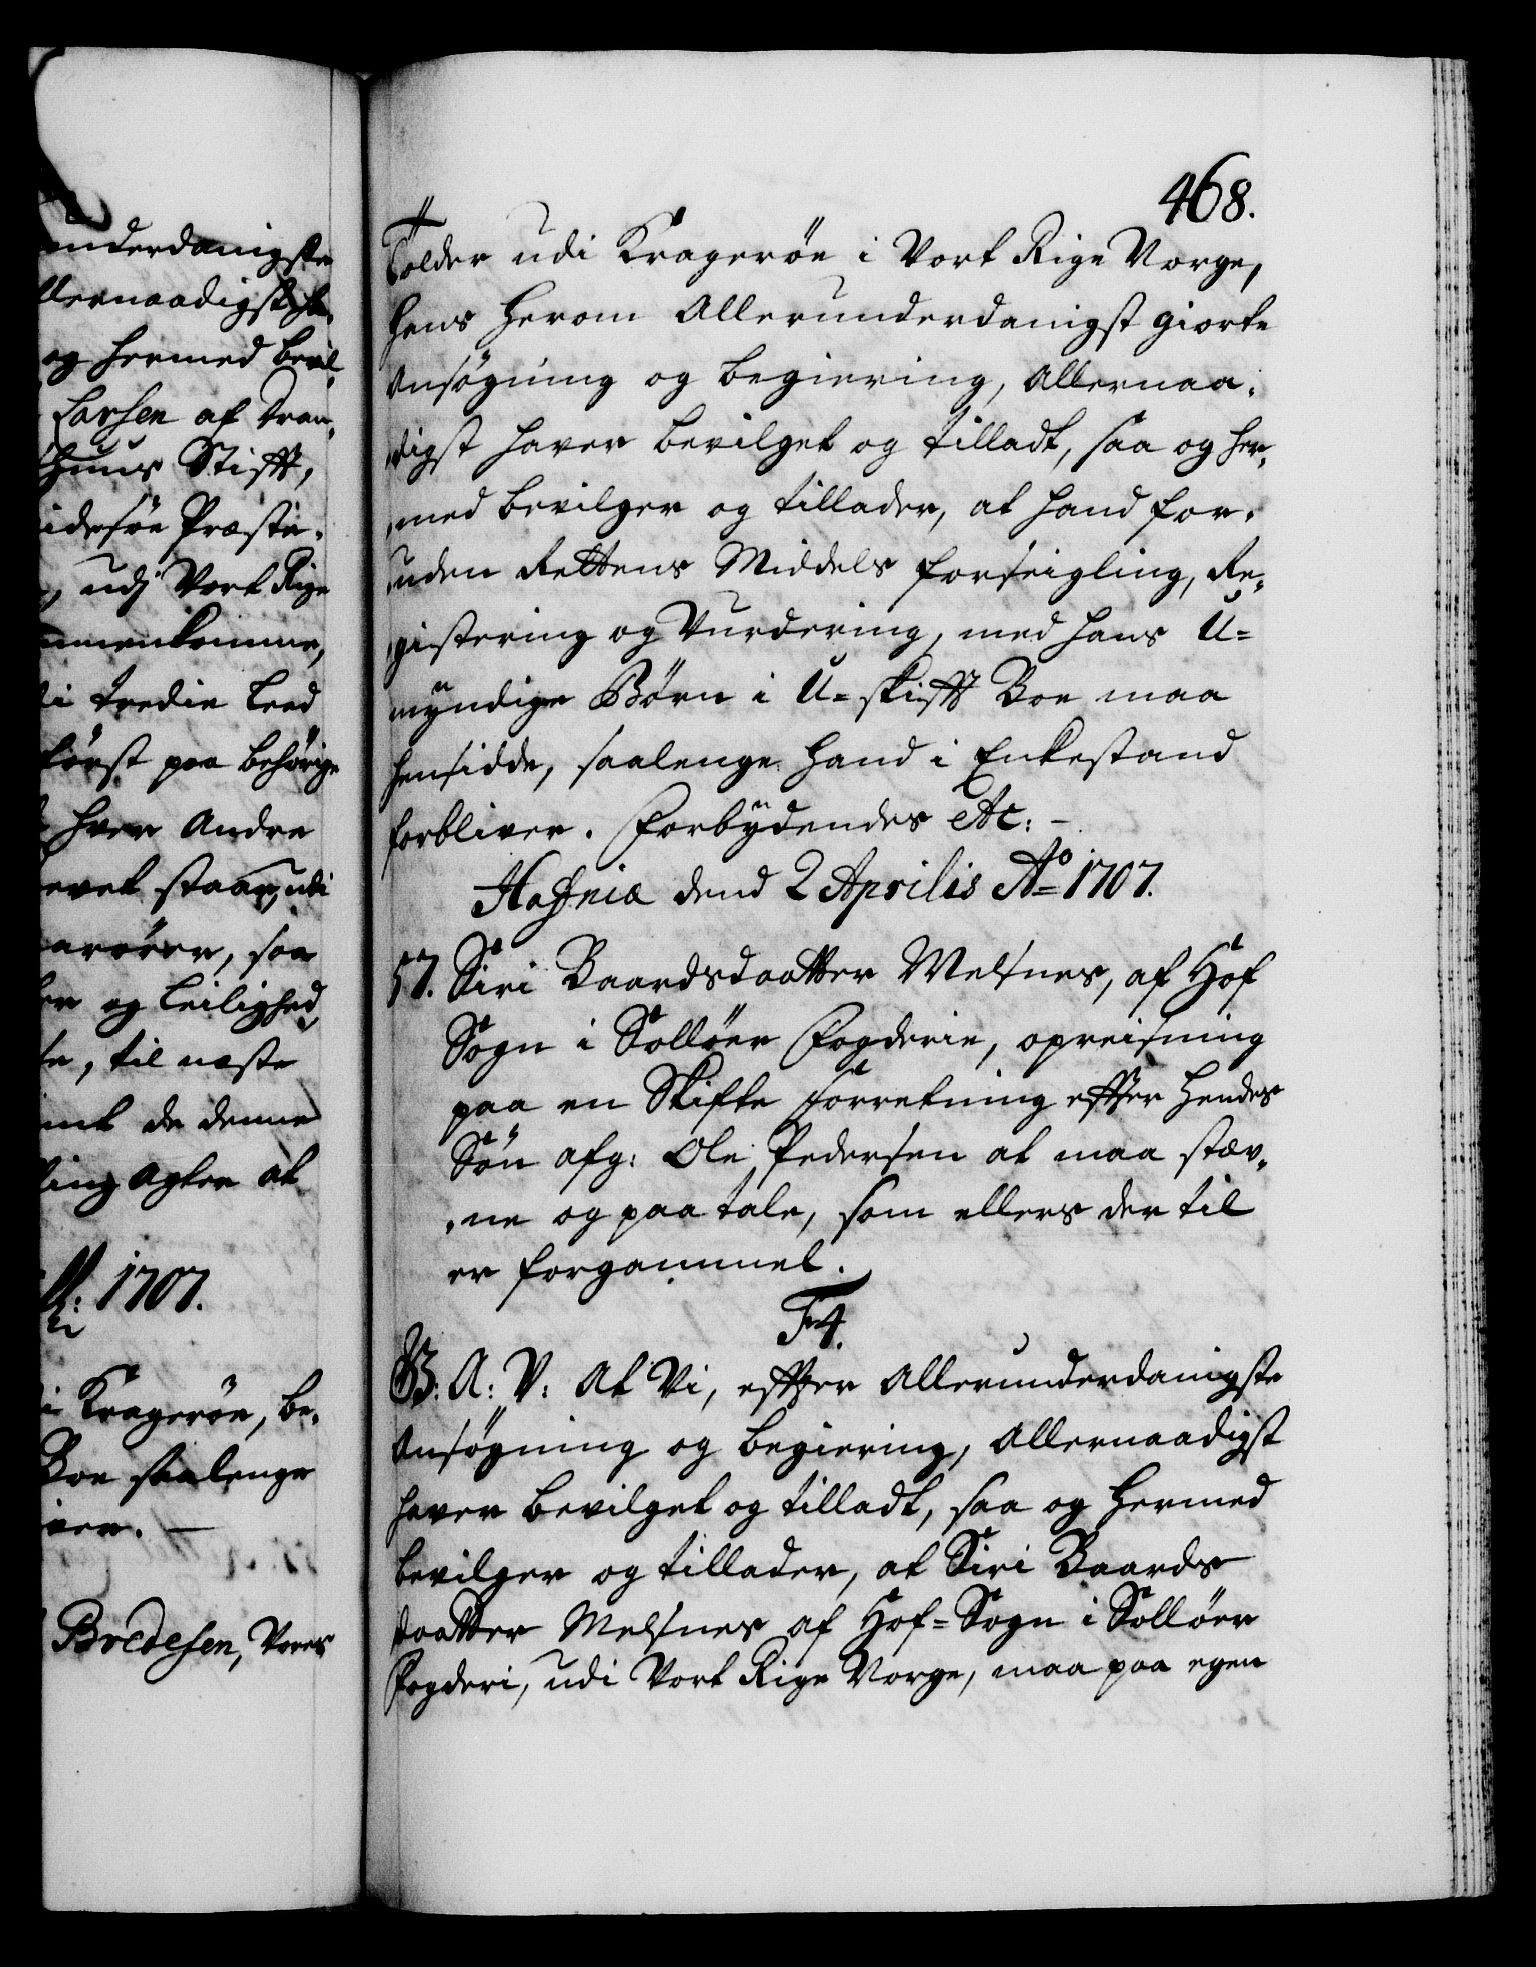 underdanigste
llernaadigst ha,
og hermed bevil,
Larsen af Tron,
huus Stifft,
idesöe Præste,
, udj Vort Rige
ammenkomme,
di tredie Leed
först paa behörige
hver Andre
evet staar, udi
arører, saa
er og Leilighed
se, til neste
mt de denne
ling agter at
1707.
i Kragerøe, be,
Boe saalenge
iver. —
Bredesen, Vores
468.
Tolder udi Kragerøe i Vort Rige Norge,
hans herom Allerunderdanigst giorte
Ansøgning og begiering, Allernaa,
digst haver bevilget og tilladt, saa og her,
med bevilger og tillader, at hand for,
uden Rettens Middels forseigling, Re,
gistering og Vurdering, med hans U=
myndige Børn i U=skifft Boe maa
hensidde, saalenge hand i Enkestand
forbliver. Forbÿdendes etc: —
Hafniæ dend 2 Aprilis Ao 1707.
57. Siri Baardsdaatter Melsnes, af Hof
Sogn i Sollöer Fogderie, opreisning
paa en Skifte forretning effter hendes
Søn afg: Ole Pedersen at maa stæv,
ne og paa tale, som ellers der til
er forgammel.
F4.
G. A: V: At Vi, effter Allerunderdanigste
Ansøgning og begiering, Allernaadigst
haver bevilget og tilladt, saa og hermed
bevilger og tillader, at Siri Baards
daatter Melsnes af Hof=Sogn i Sollöer
Fogderi, udi Vort Rige Norge, maa paa egen